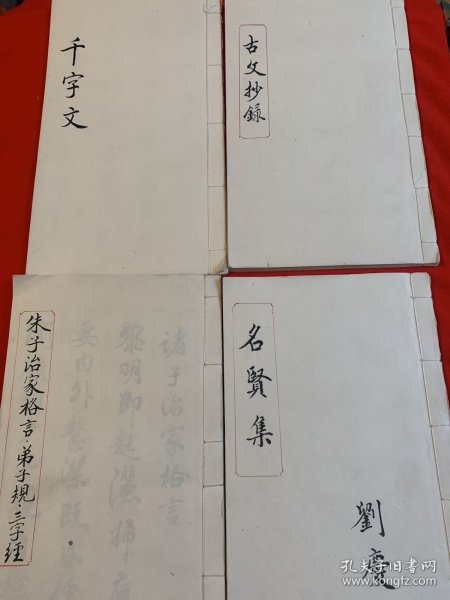 千字文
古文抄録
朱子治家格言·弟子規·三字經
諸子治家格言
黎明即起灑掃
要内外整潔既昏便
名賢集
劉
孔夫子旧书网
kongfz.com